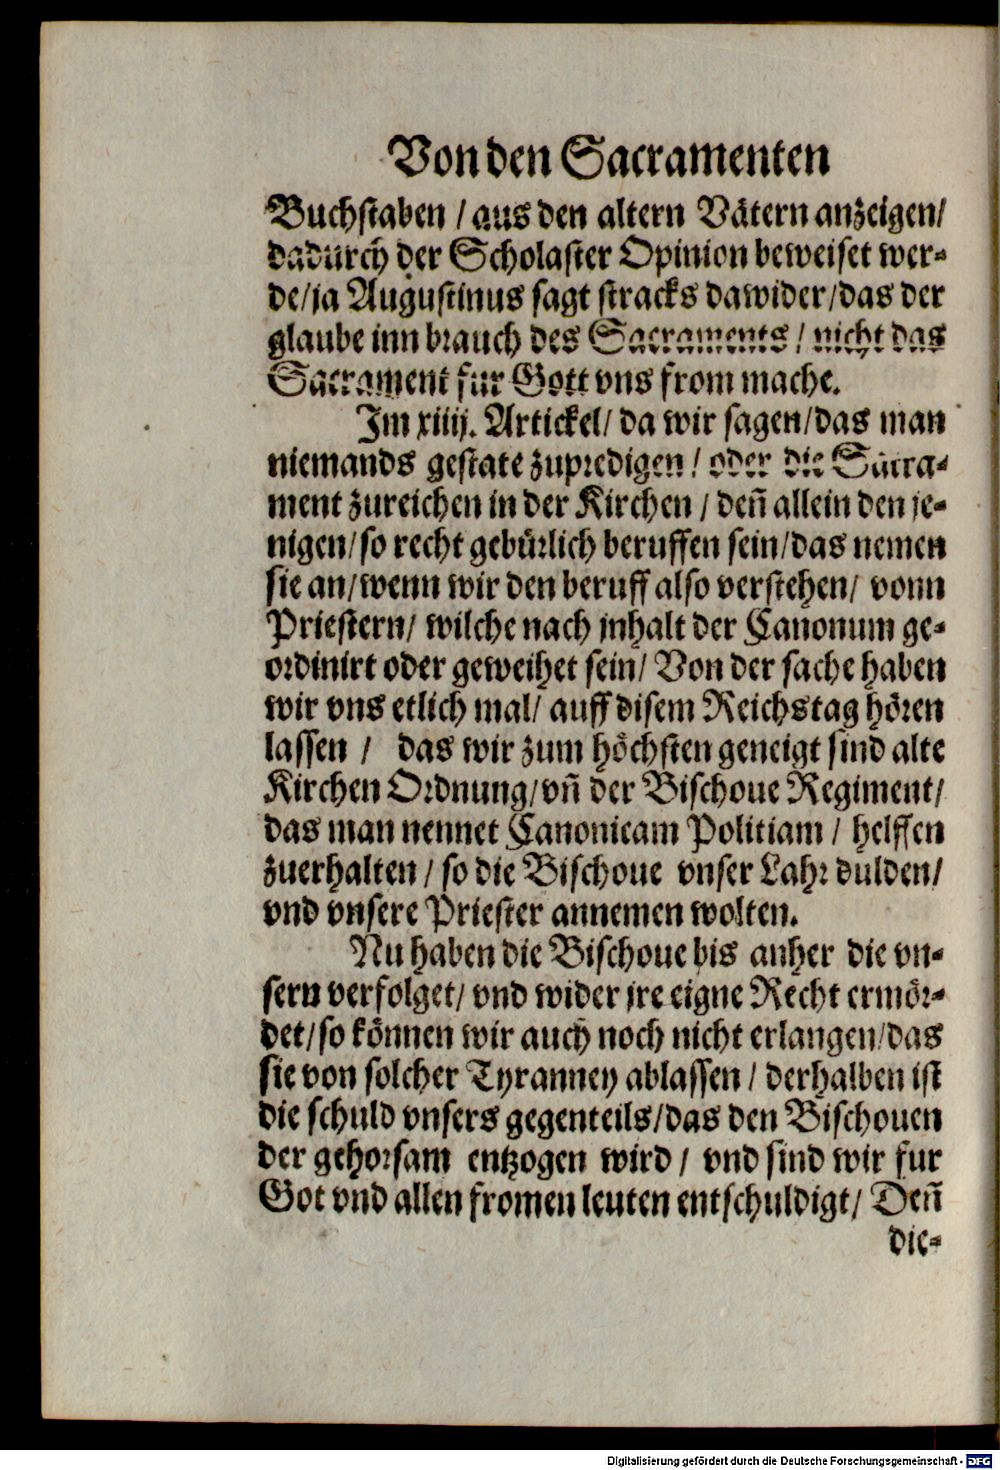 Von den Sacramenten
Buchstaben / aus den altern Vätern anzeigen/
dadurch der Scholaster Opinion beweiset wer-
de/ja Augustinus sagt stracks dawider/das der
glaube inn brauch des Sacraments / nicht das
Sacrament fur Gott vns from mache.
Im xiiij. Artickel/ da wir sagen/das man
niemands gestate zupredigen / oder die Sacra-
ment zureichen in der Kirchen / deñ allein den je-
nigen/so recht gebürlich beruffen sein/das nemen
sie an/wenn wir den beruff also verstehen/ vonn
Priestern/ wilche nach jnhalt der Canonum ge-
ordinirt oder geweihet sein/ Von der sache haben
wir vns etlich mal/ auff disem Reichstag hören
lassen / das wir zum höchsten geneigt sind alte
Kirchen Ordnung/vñ der Bischoue Regiment/
das man nennet Canonicam Politiam / helffen
zuerhalten / so die Bischoue vnser Lahr dulden/
vnd vnsere Priester annemen wolten.
Nu haben die Bischoue bis anher die vn-
sern verfolget/ vnd wider jre eigne Recht ermör-
det/so können wir auch noch nicht erlangen/das
sie von solcher Tyranney ablassen / derhalben ist
die schuld vnsers gegenteils/das den Bischouen
der gehorsam entzogen wird / vnd sind wir fur
Got vnd allen fromen leuten entschuldigt/ Deñ
die-
Digitalisierung gefördert durch die Deutsche Forschungsgemeinschaft - DFG